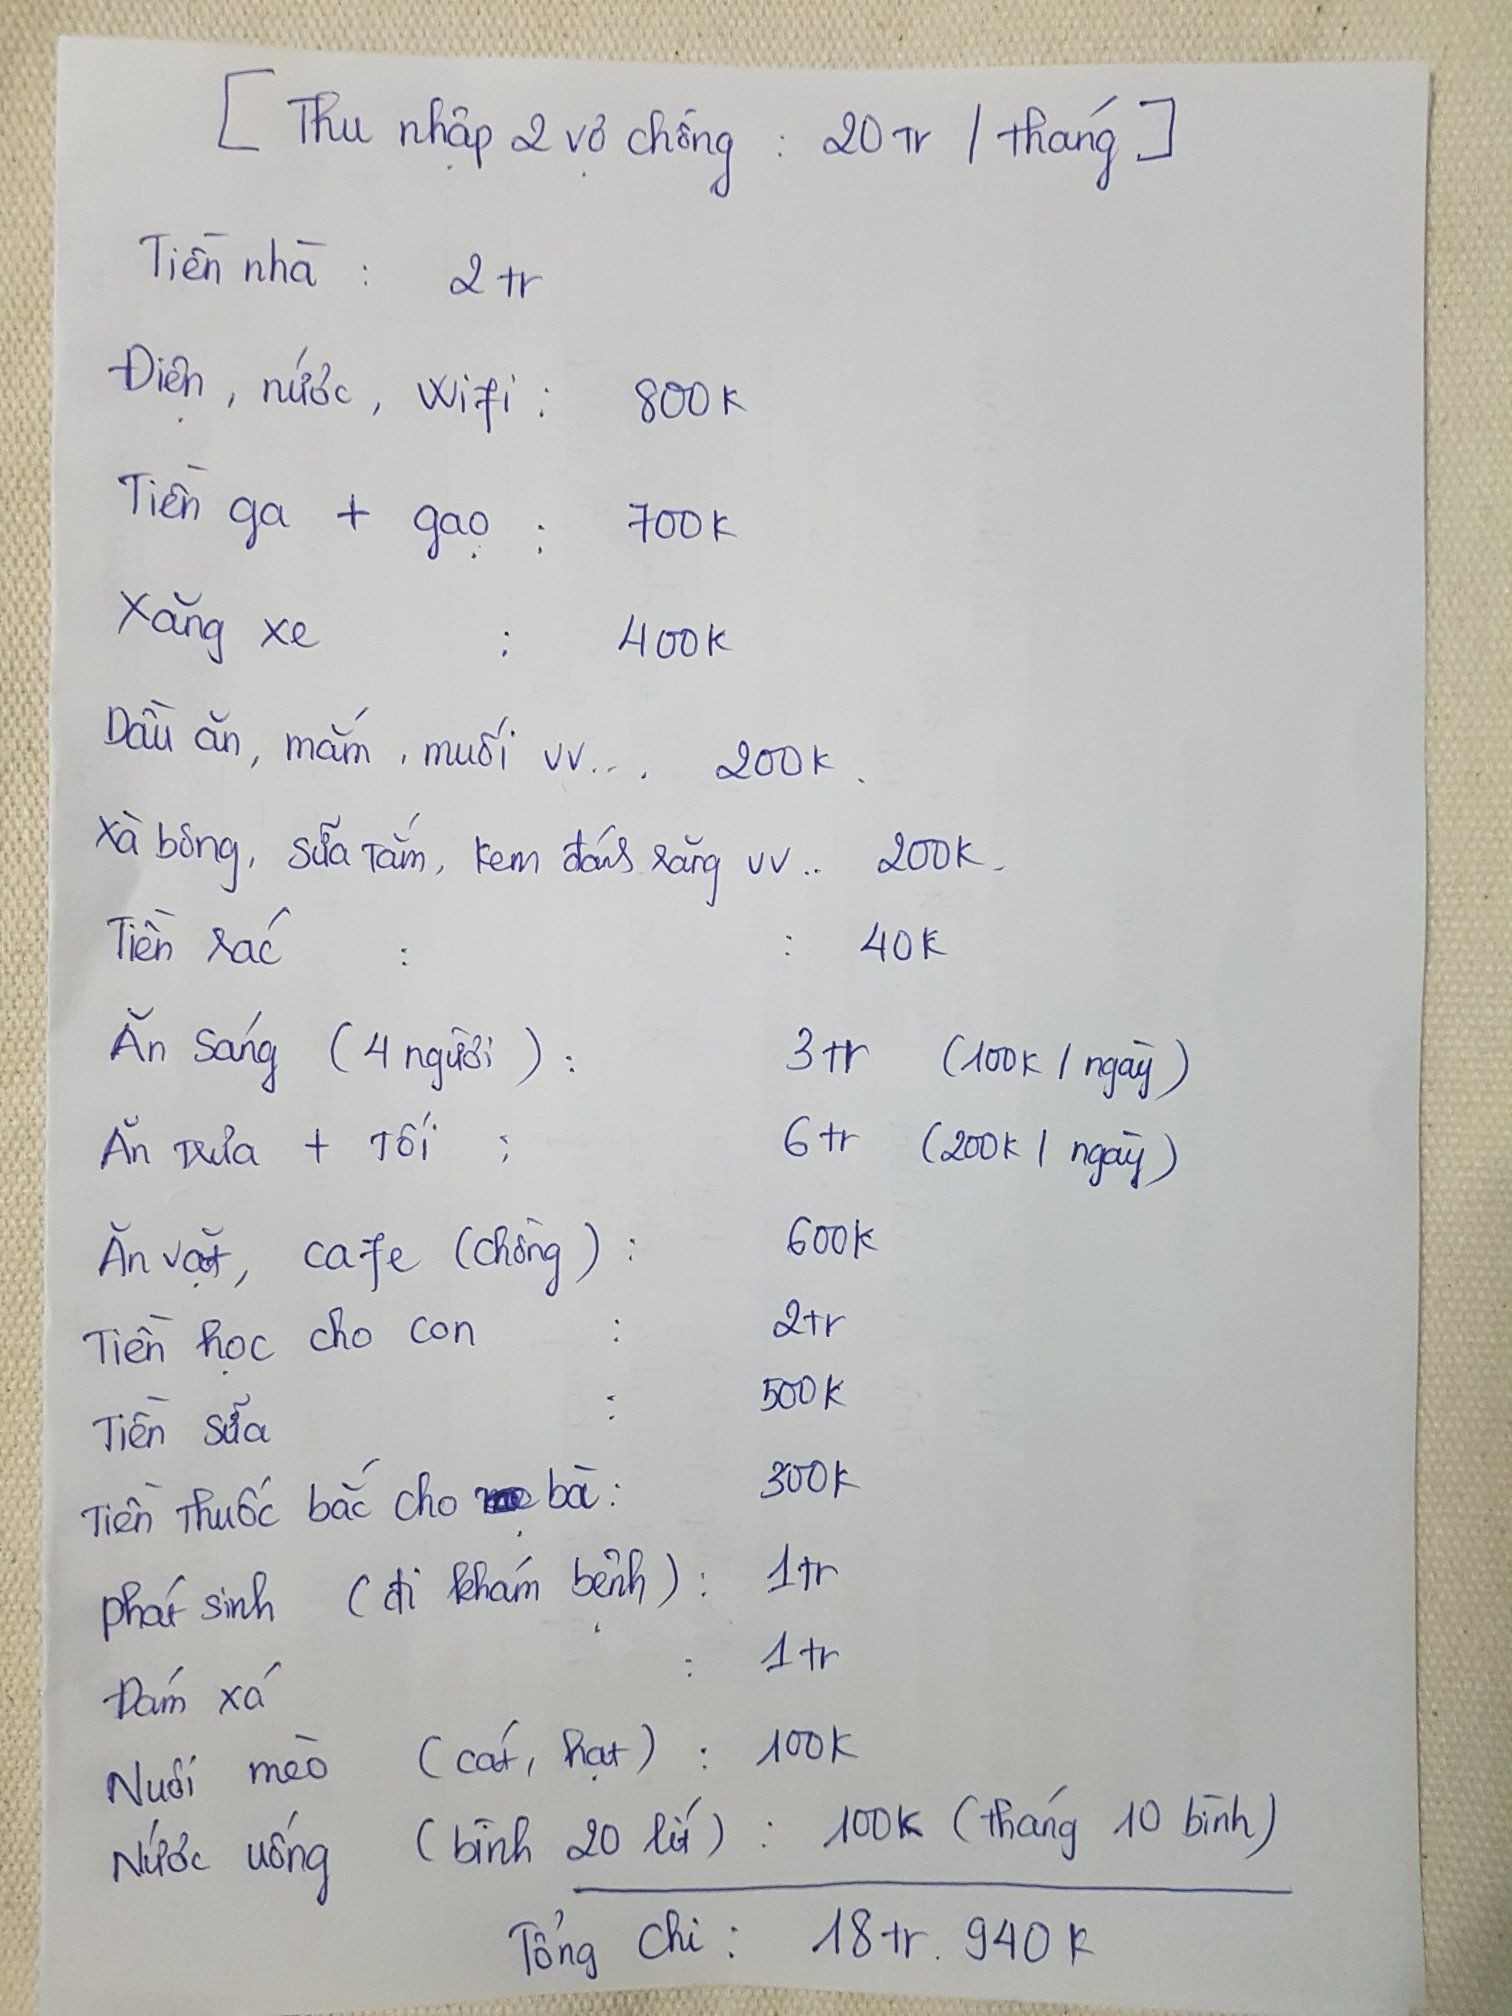 [ Thu nhập 2 vợ chồng : 20 tr / tháng ]
Tiền nhà : 2 tr
Điện, nước, wifi : 800k
Tiền ga + gạo : 700k
Xăng xe : 400k
Dầu ăn, mắm, muối vv... 200k.
Xà bông, sữa tắm, kem đánh răng vv.. 200k.
Tiền rác : : 40k
Ăn sáng (4 người) : 3 tr (100k / ngày)
Ăn trưa + tối : 6 tr (200k / ngày)
Ăn vặt, cafe (chồng) : 600k
Tiền học cho con : 2 tr
Tiền sữa : 500k
Tiền thuốc bắc cho bà : 300k
phát sinh (đi khám bệnh) : 1 tr
Đám xá : 1 tr
Nuôi mèo (cát, hạt) : 100k
Nước uống (bình 20 lít) : 100k (tháng 10 bình)
Tổng chi : 18 tr. 940k